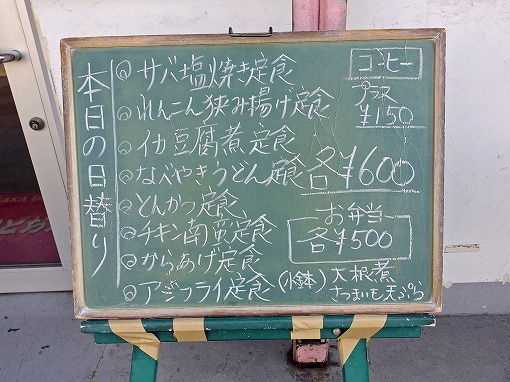 本日の日替り
サバ塩焼き定食
れんこん狭み揚げ定食
イカ豆腐煮定食
なべやきうどん定食
とんかつ定食
チキン南蛮定食
からあげ定食
アジフライ定食
(小鉢) 大根煮
さつまいも天ぷら
コーヒー
プラス
¥150
各¥600
お弁当
各¥500